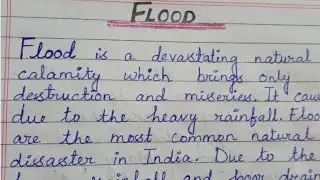 FLOOD
Flood is a devastating natural
calamity which brings only
destruction and miseries. It cau
due to the heavy rainfall. Floo
are the most common natural
disaster in India. Due to the
rainfall and poor drain